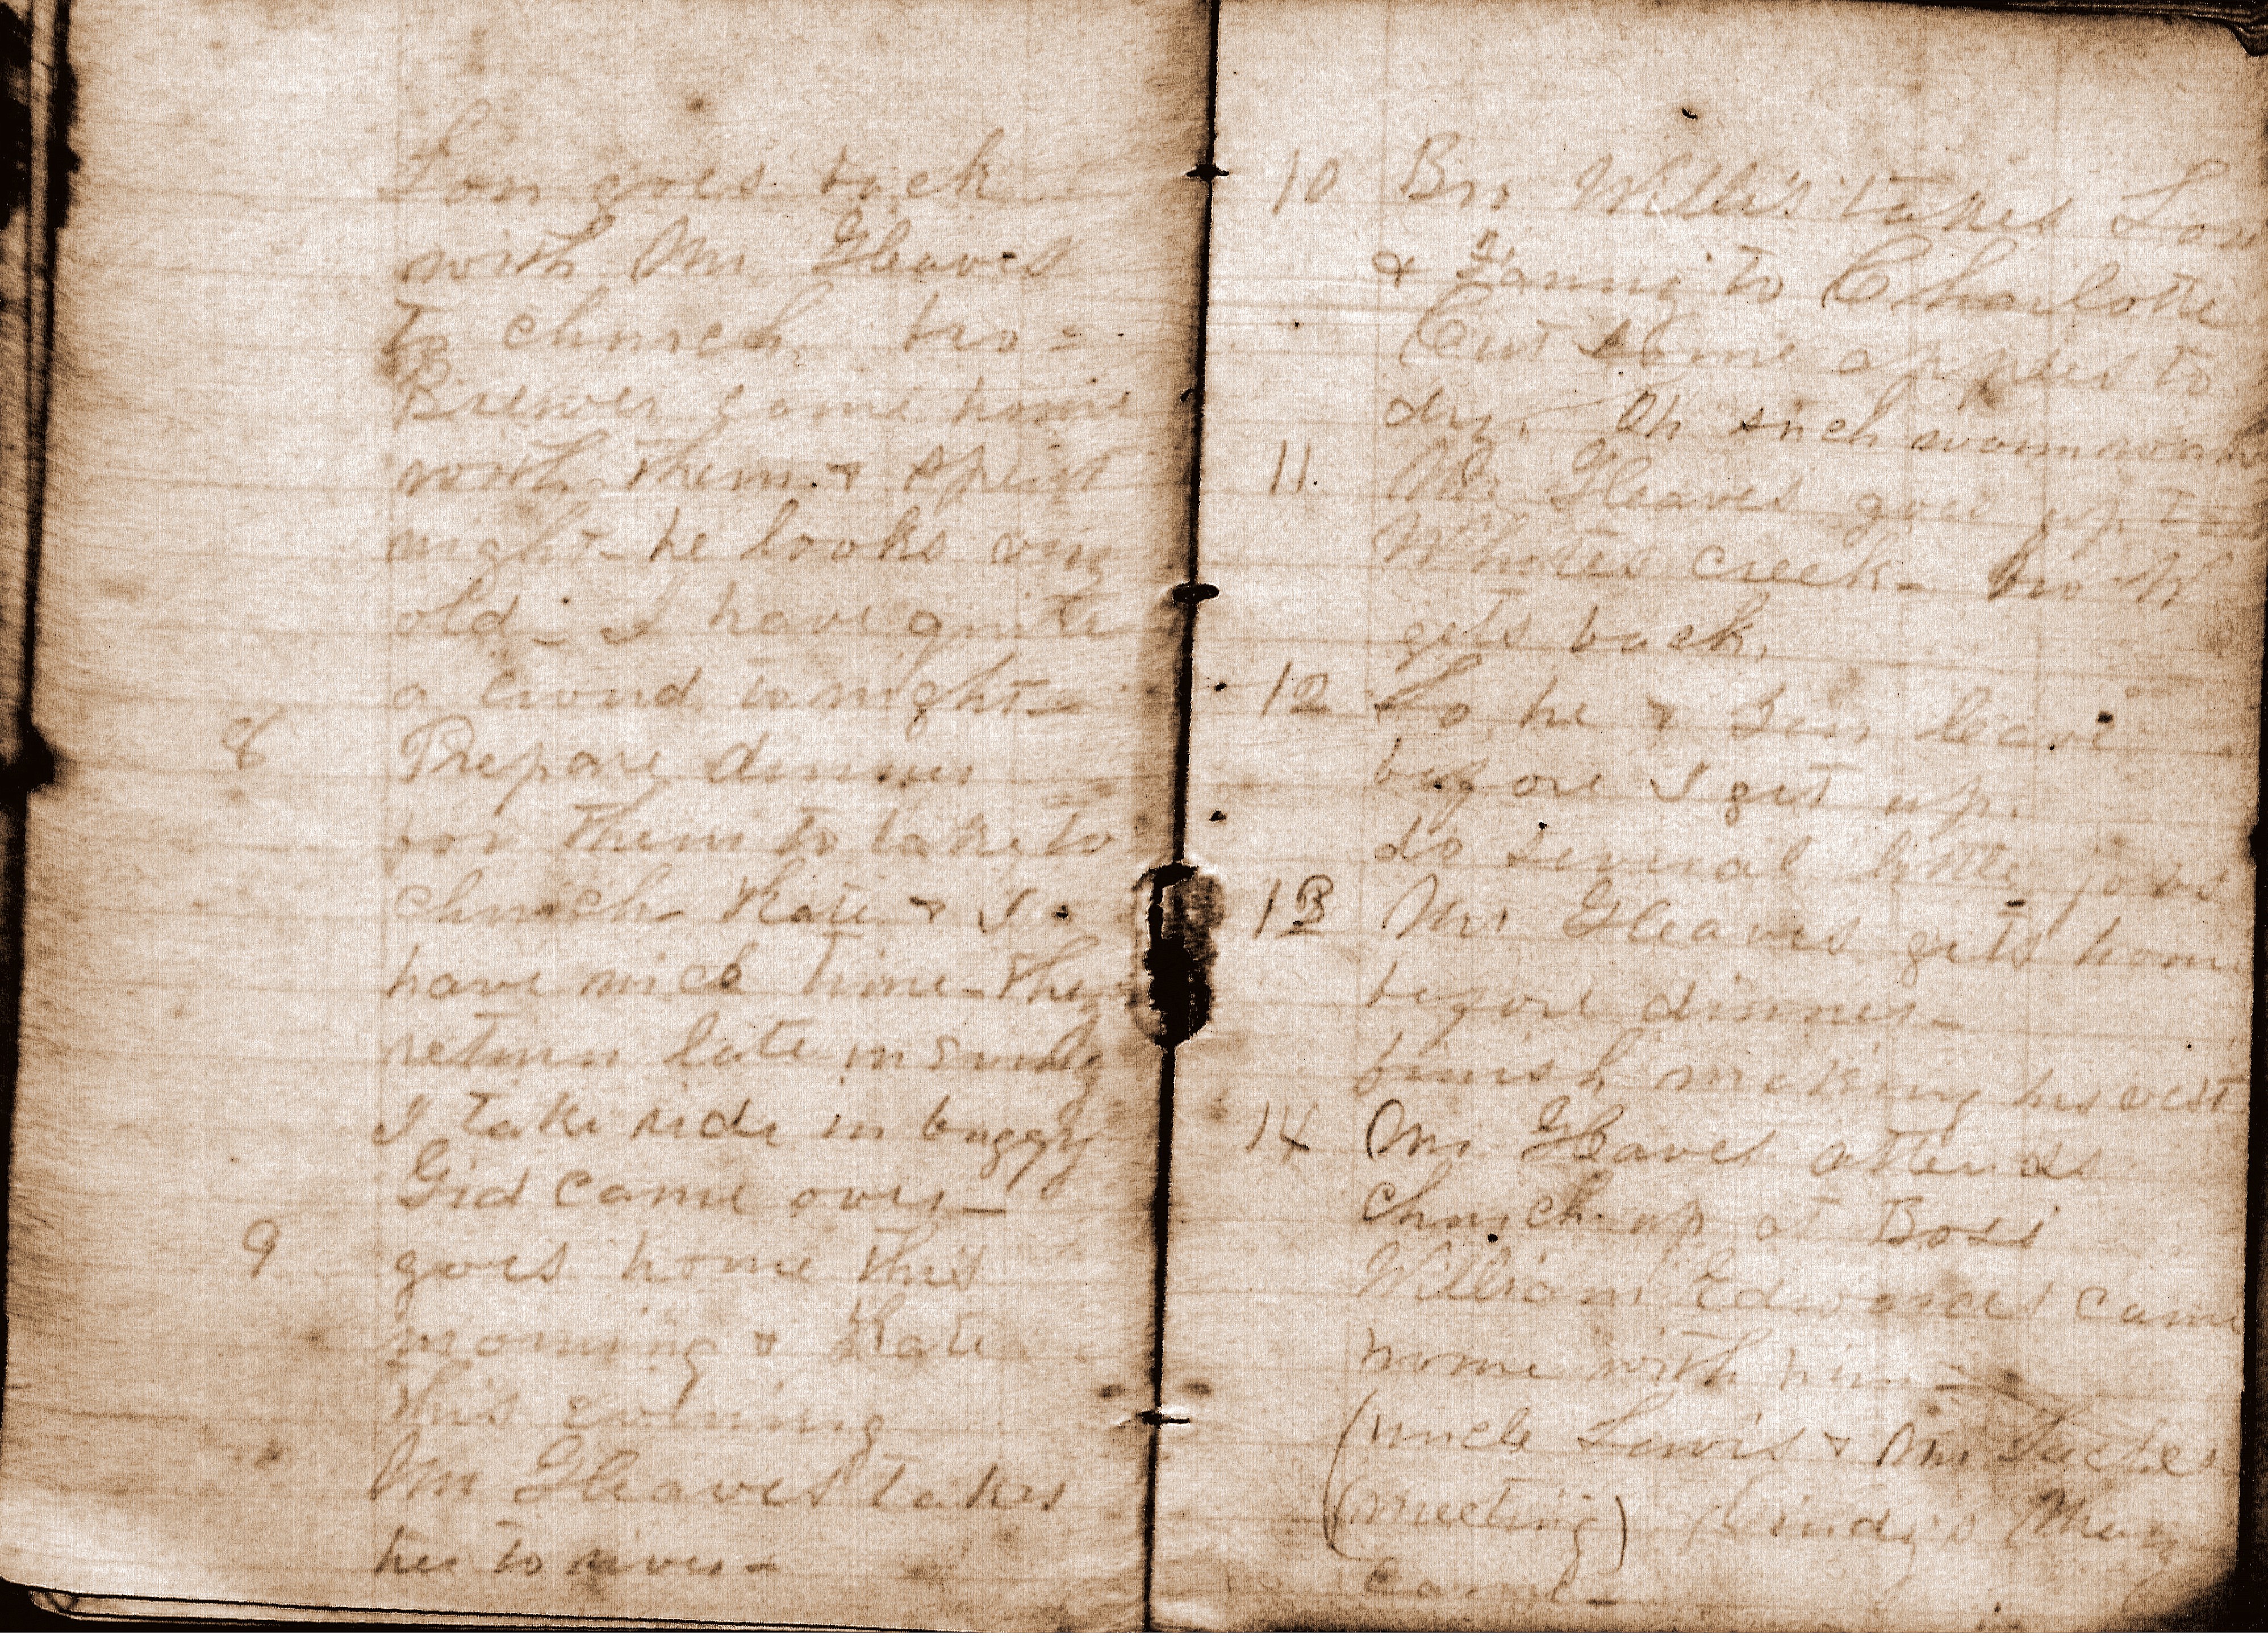 Lon goes back
with Mr Gleaves
to church, bro-
Brewer come home
with them & spent
night - he looks very
old - I have quite
a crowd tonight -
8 Prepare dinner
for them to take to
church Kate & I
have nice time - they
return late in evning
I take ride in buggy
Gid came over -
9 goes home this
morning & Kate
this evening
Mr Gleaves takes
her to river -
10 Bro Willis takes Lon
& Fannie to Charlotte
Cut some apples to
dry. Oh such warm
11. Mr Gleaves goes up to
Whites creek - bro W
gets back.
12 So he & leave
before I get up.
do several little jobs
13 Mr Gleaves gets home
before dinner -
finish making his vest
14 Mr Gleaves attends
church up at Bosi
William Edwards came
home with him -
(uncle Lewis & Mr
(meeting) Mary
came -